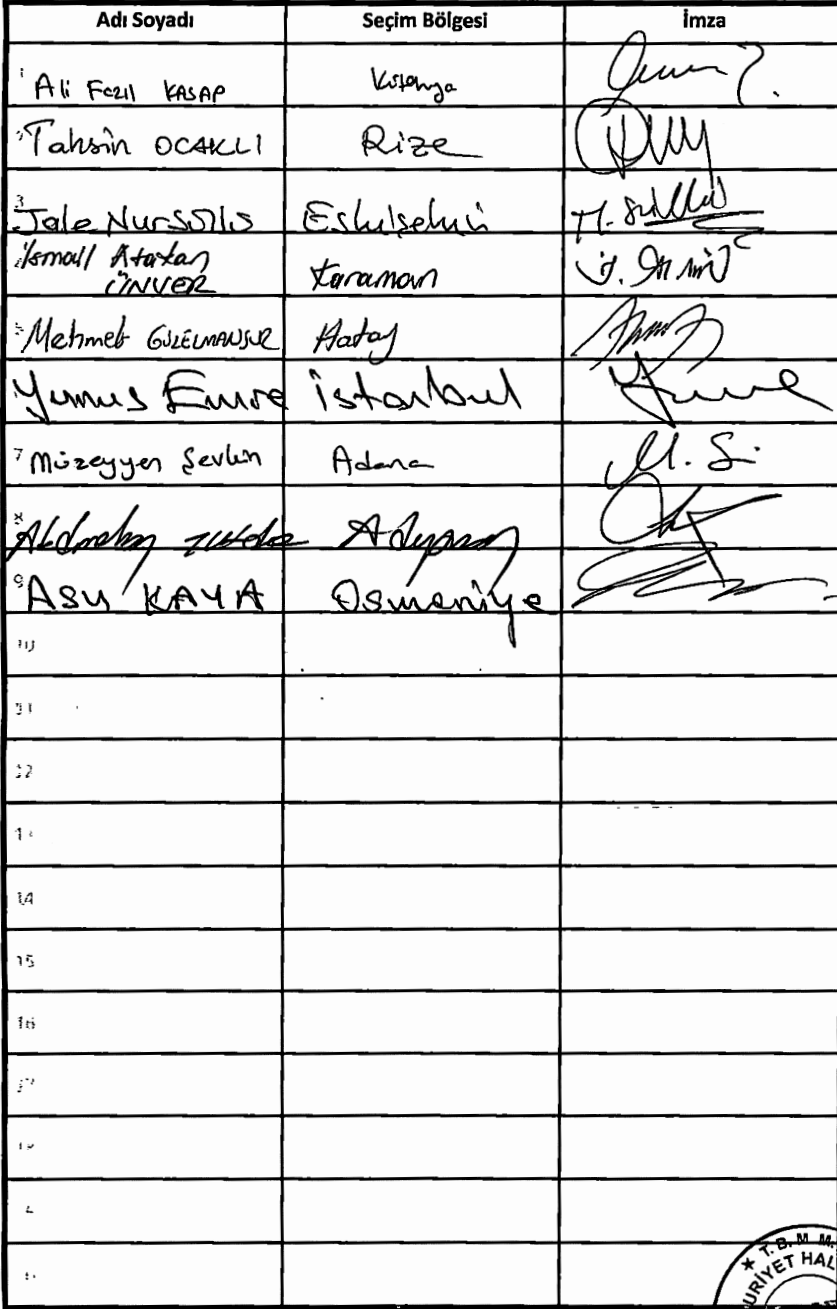 Adı Soyadı Seçim Bölgesi İmza
1 Ali Fazıl KASAP Kütahya
2 Tahsin OCAKLI Rize
3 Jale Nur Süllü Eskişehir
İsmail Atakan
ÜNVER Karaman
5 Mehmet GÜZELMANSUR Hatay
Yunus Emre İstanbul
7 Müzeyyen Şevkin Adana
8 Adıyaman
9 ASU KAYA Osmaniye
10
11
12
13
14
15
16
17
T.B.M.M.
URİYET HAL